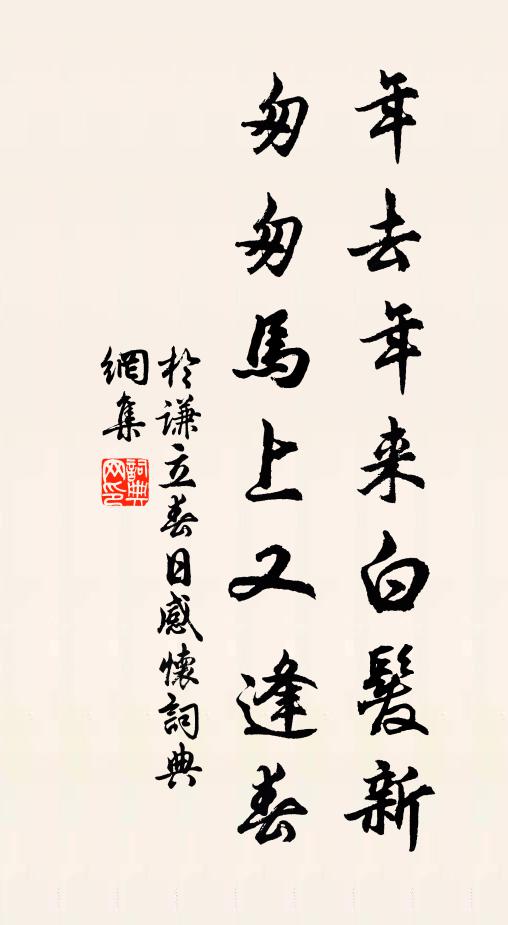 年去年来白髮新
匆匆馬上又逢春
於謙立春日感懷詞典
網集
詞典
网印